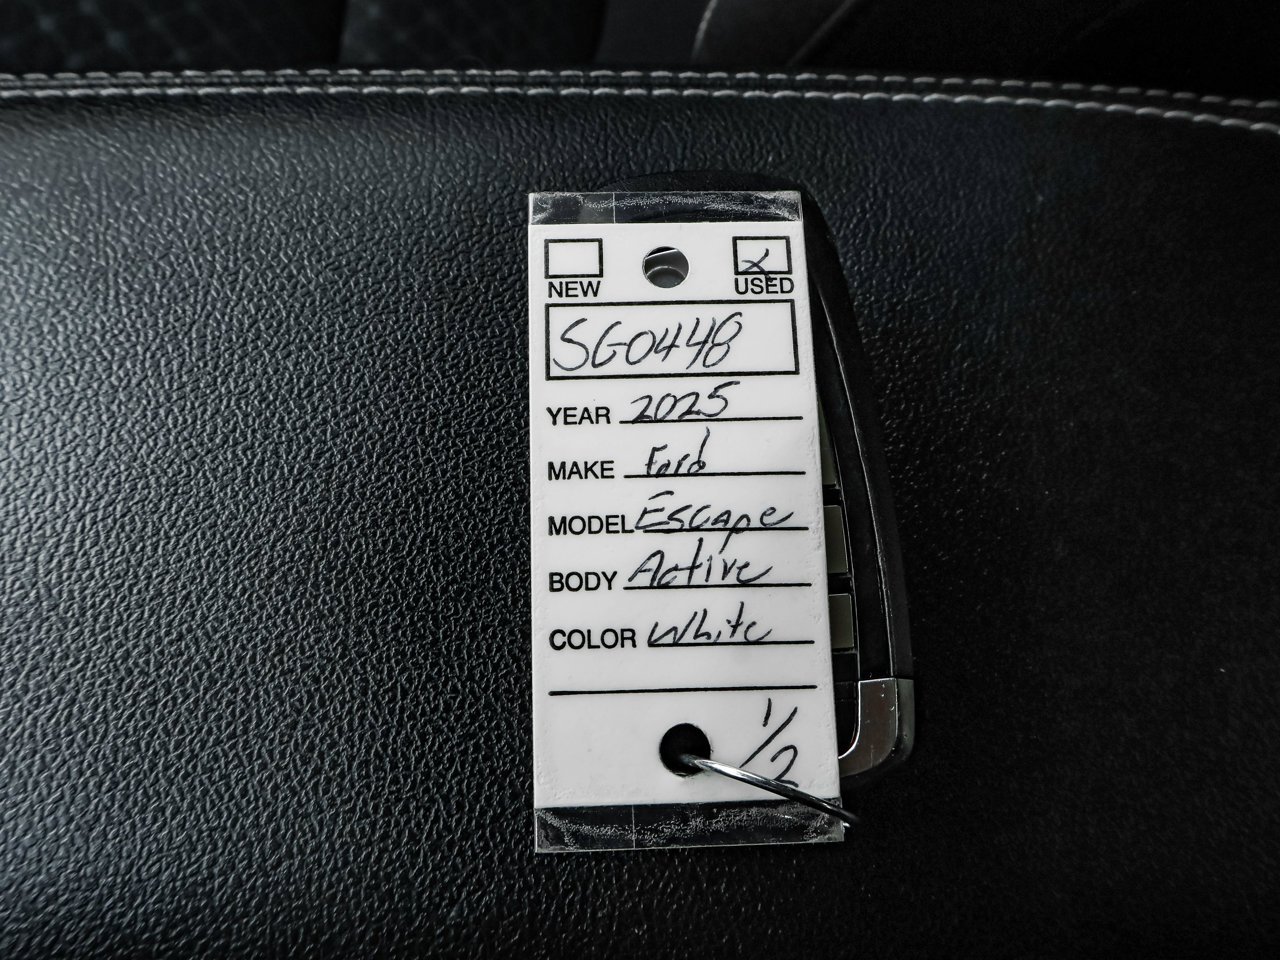 NEW USED
SG0448
YEAR 2025
MAKE Ford
MODEL Escape
BODY Active
COLOR White
1/2